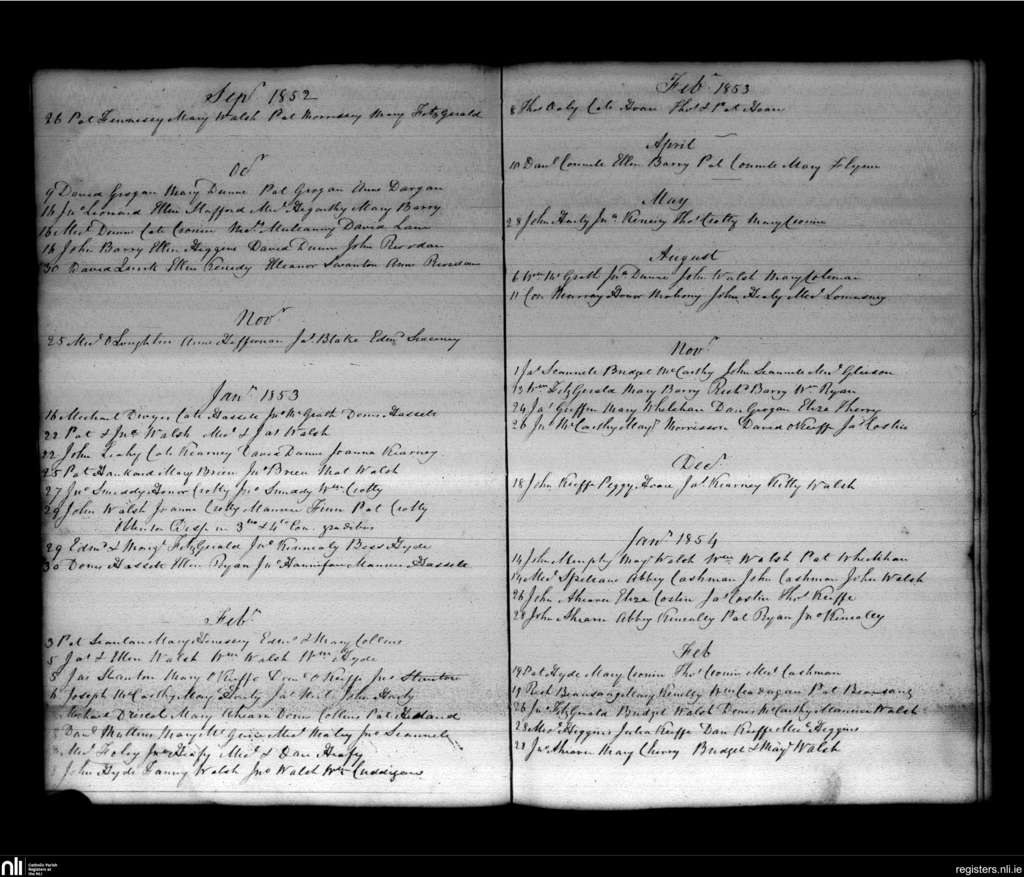 Sepr 1852
26 Pat Hennessy Mary Walsh Pat Morrissy Mary Fitzgerald
Octr
9 David Grogan Mary Dunne Pat Grogan Anne Dargan
16 Jno Leonard Ellen Stafford Mics Hegarthy Mary Barry
16 Mics Dunn Cate Cronin Mics Mulcanny David Lane
16 John Barry Ellen Heggins David Dunn John Riordan
30 David Ellen Kenedy Eleanor Swanton Anne Riordan
Novr
25 Mics O Loughlin Anne Heffernan Jas Blake Edmd Sweeney
Jany 1853
16 Michael Dwyer Cate Hassett Jno McGrath Denis Hassett
22 Pat & Jno Walsh Mics & Jas Walsh
22 John Leahy Cate Kearney David Dunne Joanna Kearney
25 Pat Hankard Mary Brien Jno Brien Mat Walsh
27 Jno Smiddy Honor Crotty Jno Smiddy Wm Crotty
29 John Walsh Joanna Crotty Maurice Finn Pat Crotty
Disp in 3tio & 4to Con. gradibus
29 Edmd & Margt FitzGerald Jno Kennealy Bess Hyde
30 Denis Hassett Ellen Ryan Jno Hannifan Maurice Hassett
Feby
3 Pat Scanlan Mary Hennessy Edmd & Mary Collins
5 Jas & Ellen Walsh Wm Walsh Wm Hyde
5 Jas Stanton Mary O Keeffe Danl O Keeffe Jno Stanton
6 Joseph McCarthy Mary Hurly Jas Neil John Hurly
Michael Driscol Mary Ahearn Denis Collins Pat
8 Danl Mullins Mary Mics Healy Jno Scannell
8 Mics Foley Jno Heafy Mics & Dan Heafy
8 John Hyde Fanny Walsh Jno Walsh Wm Cuddigan
Feby 1853
8 Thos Cate Hoare Thos & Pat Hoare
April
10 Danl Connell Ellen Barry Pat Connell Mary
May
28 John Hurly Jno Thos Crotty Mary Cronin
August
6 Wm McGrath Jno Dunne John Walsh Mary Coleman
11 Con Murray Honor Mahony John Healy Mics Lomasney
Novr
1 Jas Scannell Bridget McCarthy John Scannell Mics Gleeson
13 Wm FitzGerald Mary Barry Richd Barry Wm Ryan
24 Jas Griffin Mary Whelehan Dan Grogan Eliza Sherry
26 Jno McCarthy Margt Morrisson David O Keeffe Jas Costin
Decr
18 John Keeffe Peggy Hoare Jas Kearney Kitty Walsh
Jany 1854
14 John Murphy Mary Walsh Wm Walsh Pat Whelehan
14 Mics Spillane Abbey Cashman John Cashman John Walsh
26 John Ahearn Eliza Costin Jas Costin Thos Keeffe
28 John Ahearn Abby Kinealy Pat Ryan Jno Kinealey
Feb
19 Pat Hyde Mary Cronin Thos Cronin Mics Cashman
19 Rich Beausang Mary Kenelly Wm Cadogan Pat Beausang
26 Jno FitzGerald Bridget Walsh Denis McCarthy Maurice Walsh
28 Mics Heggins Julia Keeffe Dan Keeffe Mics Heggins
28 Jno Ahearn Mary Cherry Bridget & Mary Walsh
nli
Catholic Parish
Registers at
the NLI
registers.nli.ie